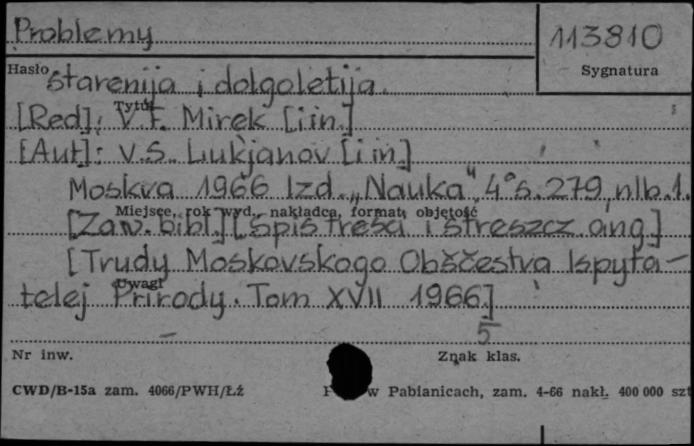 Problemy
113810
Hasło
Sygnatura
starenija i dolgoletija.
Tytuł
[Red]: V.F. Mirek [i in.]
[Aut]: V.S. Lukjanov [i in.]
Moskva 1966 Izd. „Nauka", 4° s. 279, nlb. 1.
Miejsce, rok wyd., nakładca, format, objętość
[Zaw. bibl.] [Spis treści i streszcz. ang.]
[Trudy Moskovskogo Obščestva Ispyta-
Uwagi
telej Prirody. Tom XVII 1966.]
5
Nr inw.
Znak klas.
CWD/B-15a zam. 4066/PWH/Łź
w Pabianicach, zam. 4-66 nakł. 400 000 szt